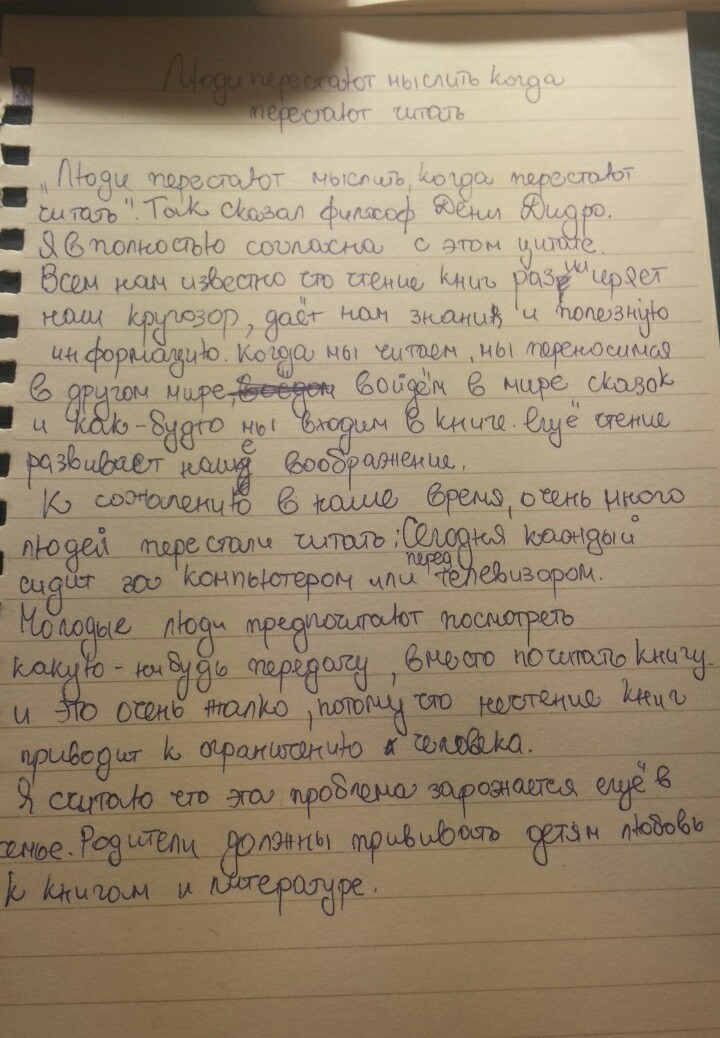 Люди перестают мыслить когда
перестают читать
„Люди перестают мыслить, когда перестают
читать". Так сказал философ Дени Дидро.
Я вполностью согласна с этом цитате.
Всем нам известно что чтение книг разширяет
наш кругозор, даёт нам знания и полезную
информацию. Когда мы читаем, мы переносимая
в другом мире, войдём в мире сказок
и как-будто мы входим в книге. ещё чтение
развивает наше воображение.
К сожалению в наше время, очень много
людей перестали читать. Сегодня каждый
сидит за компьютером или перед телевизором.
Молодые люди предпочитают посмотреть
какую-нибудь передачу, вместо почитать книгу
и это очень жалко, потому что нечтение книг
приводит к ограничению человека.
Я считаю что эта проблема зарожается ещё в
семье. Родители должны прививать детям любовь
к книгам и литературе.